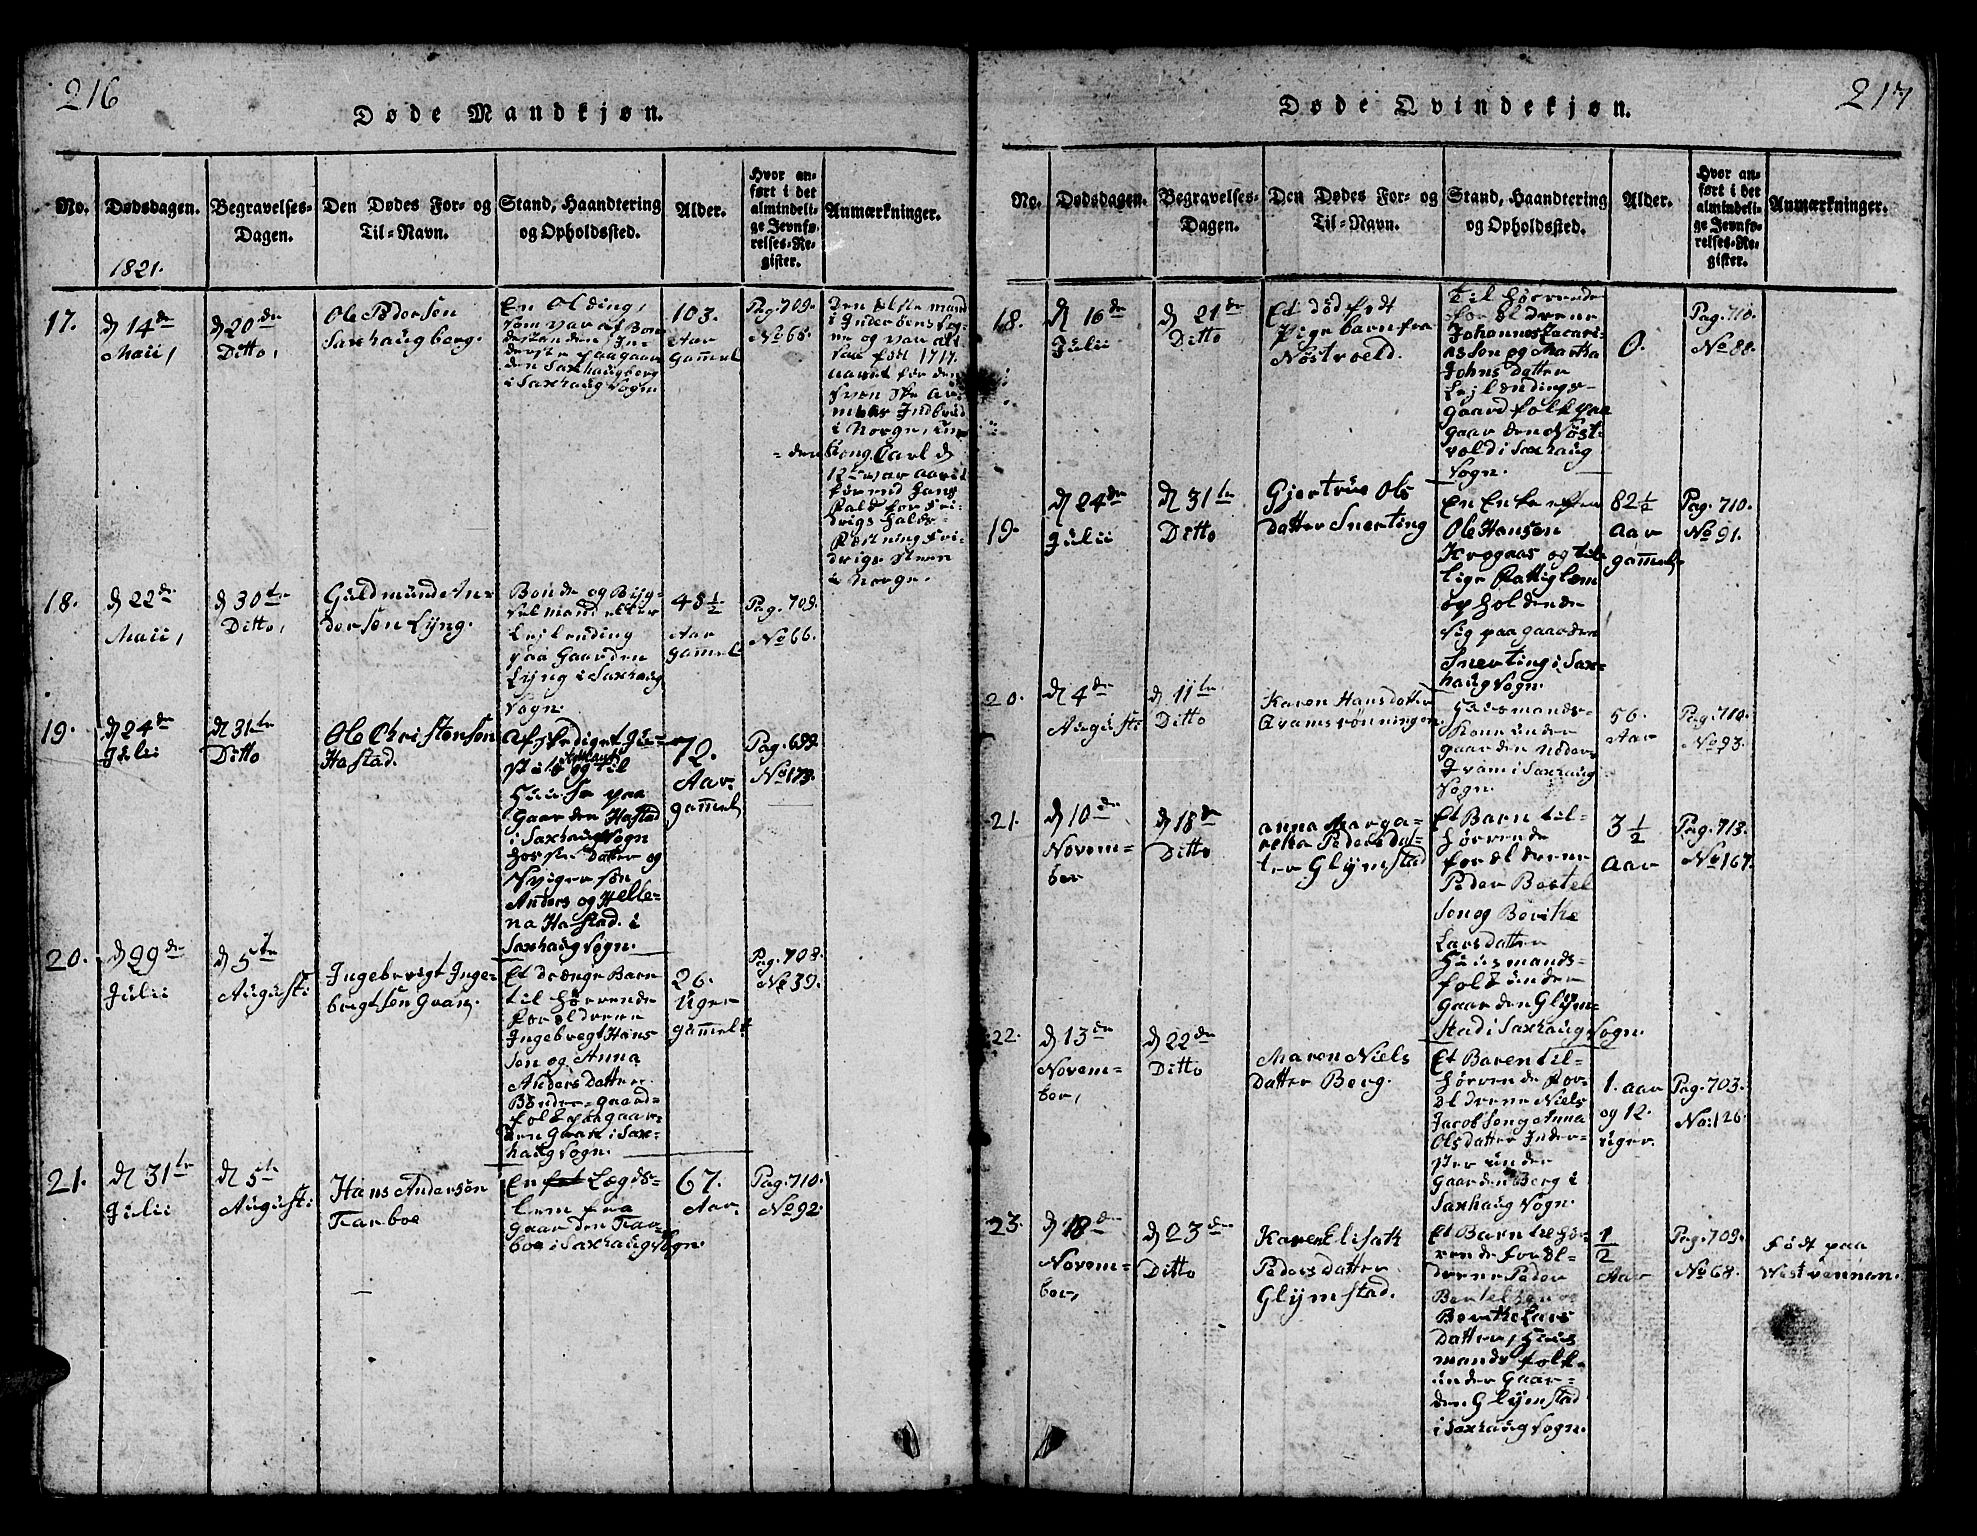 216
Døde Mandkjøn.
No.
Dødsdagen.
Begravelses-
Dagen.
Den Dødes For- og
Til-Navn.
Stand, Haandtering
og Opholdssted.
Alder.
Hvor an-
ført i det
almindeli-
ge Jevnfø-
relses-Re-
gister.
Anmærkninger.
1821.
17.
d 14de
Maii,
d 20de
Ditto,
Ole Pedersen
Saxhaugberg.
En Olding,
som var af Bon-
destanden, In-
derste paa gaar
den Saxhaugberg
i Saxhaug Sogn
103.
Aar
gammel
Pag. 709.
No 65.
Den Elste mand
i Inderøens Sog-
ne og var alt
saa født 1717.
aaret før den
Svenske Ar-
mees Indbrud
i Norge, un-
den Kong Carl d
12te var aaret
førend hans
Fald for Fri-
drigs Halds
Fæstning Fri-
drigs steen
i Norge.
18.
d 22de
Maii,
d 30te
Ditto,
Guldmund An-
dersen Lÿng.
Bonde og Bÿg-
selmand eller
Lejlending
paa Gaarden
Lÿng i Saxhaug
Sogn.
48 1/2
Aar
gammel
Pag. 709.
No 66.
19.
d 24de
Julii
d 31te
Ditto
Ole Christensen
Hastad.
Afskediget Ju-
stits og til
Huuse paa
Gaarden Hastad
i Saxhaug Sogn
hos sin Datter og
Svigersøn
Anders og Helle-
na Hastad. i
Saxhaug Sogn.
72.
Aar
gammel
Pag. 699.
No 173.
20.
d 29de
Julii
d 5te
Augusti
Ingebregt Inge-
bregtsen Qvam,
Et Drænge Barn
tilhørrende
Forældrene
Ingebregt Hans
Søn og Anna
Anders Datter
Bønder-gaard-
folk paa gaar-
den Qvam i Sax-
haug Sogn.
26.
Uger
gammel
Pag. 708.
No 39.
21.
d 31te
Julii
d 5te
Augusti
Hans Andersøn
Tiarboe
En Lægds-
lem fra
Gaarden Tiar-
boe i Saxhaug Sogn.
67.
Aar.
Pag. 710.
No 92.
217
Døde Qvindekjøn.
No.
Dødsdagen.
Begravelses-
Dagen.
Den Dødes For- og
Til-Navn.
Stand, Haandtering
og Opholdssted.
Alder.
Hvor an-
ført i det
almindeli-
ge Jevnfø-
relses-Re-
gister.
Anmærkninger.
18.
d 16de
Julii
d 21de
Ditto
Et dødfødt
Pigebarn fra
Nøstvold.
Tilhørrende
Forældrene
Johannes Zacari-
as Søn og Martha
Johns Datter
Lejlændinge-
gaardfolk paa
gaarden Nøst-
vold i Saxhaug
Sogn.
0.
Pag. 710.
No 88.
19.
d 24de
Julii
d 31te
Ditto
Gjertrue Ols
datter Snerting
En Enke efter
Ole Hansen
Krogaas og til-
lige Fattiglem
opholdende
sig paa gaarden
Snerting i Sax-
haug Sogn.
82 1/2
Aar
gammel
Pag. 710.
No 91.
20.
d 4de
Augusti
d 11te
Ditto
Karen Hansdatter
Qvamsrønningen
Huusmands-
Kone under
gaarden Neder-
Qvam i Saxhaug
Sogn.
56.
Aar
Pag. 710.
No 93.
21.
d 10de
Novem-
ber
d 18de
Ditto
Anna Marga-
retha Pedersdat-
ter Glÿmstad
Et Barn til-
hørrende
forældrene
Peder Bertel
Søn og Berithe
Larsdatter
Huusmands-
folk under
Gaarden Glÿm-
stad i Saxhaug Sogn.
3 1/2
Aar
Pag. 713.
No 167.
22.
d 13de
Novem-
ber,
d 22de
Ditto
Maren Niels
Datter Berg.
Et Baren til-
hørrende For-
ældrene Niels
Jacobsen og Anna
Olsdatter Inder-
ster under
Gaarden Berg i
Saxhaug Sogn.
1. Aar
og 12.
Uger.
Pag. 703.
No: 126.
23.
d 18de
Novem-
ber,
d 23de
Ditto
Karen Elisath
Pedersdatter
Glÿmstad.
Et Barn tilhør-
rende Foræl-
drene Peder
Bertelsen og
Berithe Lars
Datter, Huus
mands folk
under Gaar-
den Glÿmstad
i Saxhaug Sogn.
1/2
Aar
Pag. 709.
No 68.
Født paa
Westvennan.